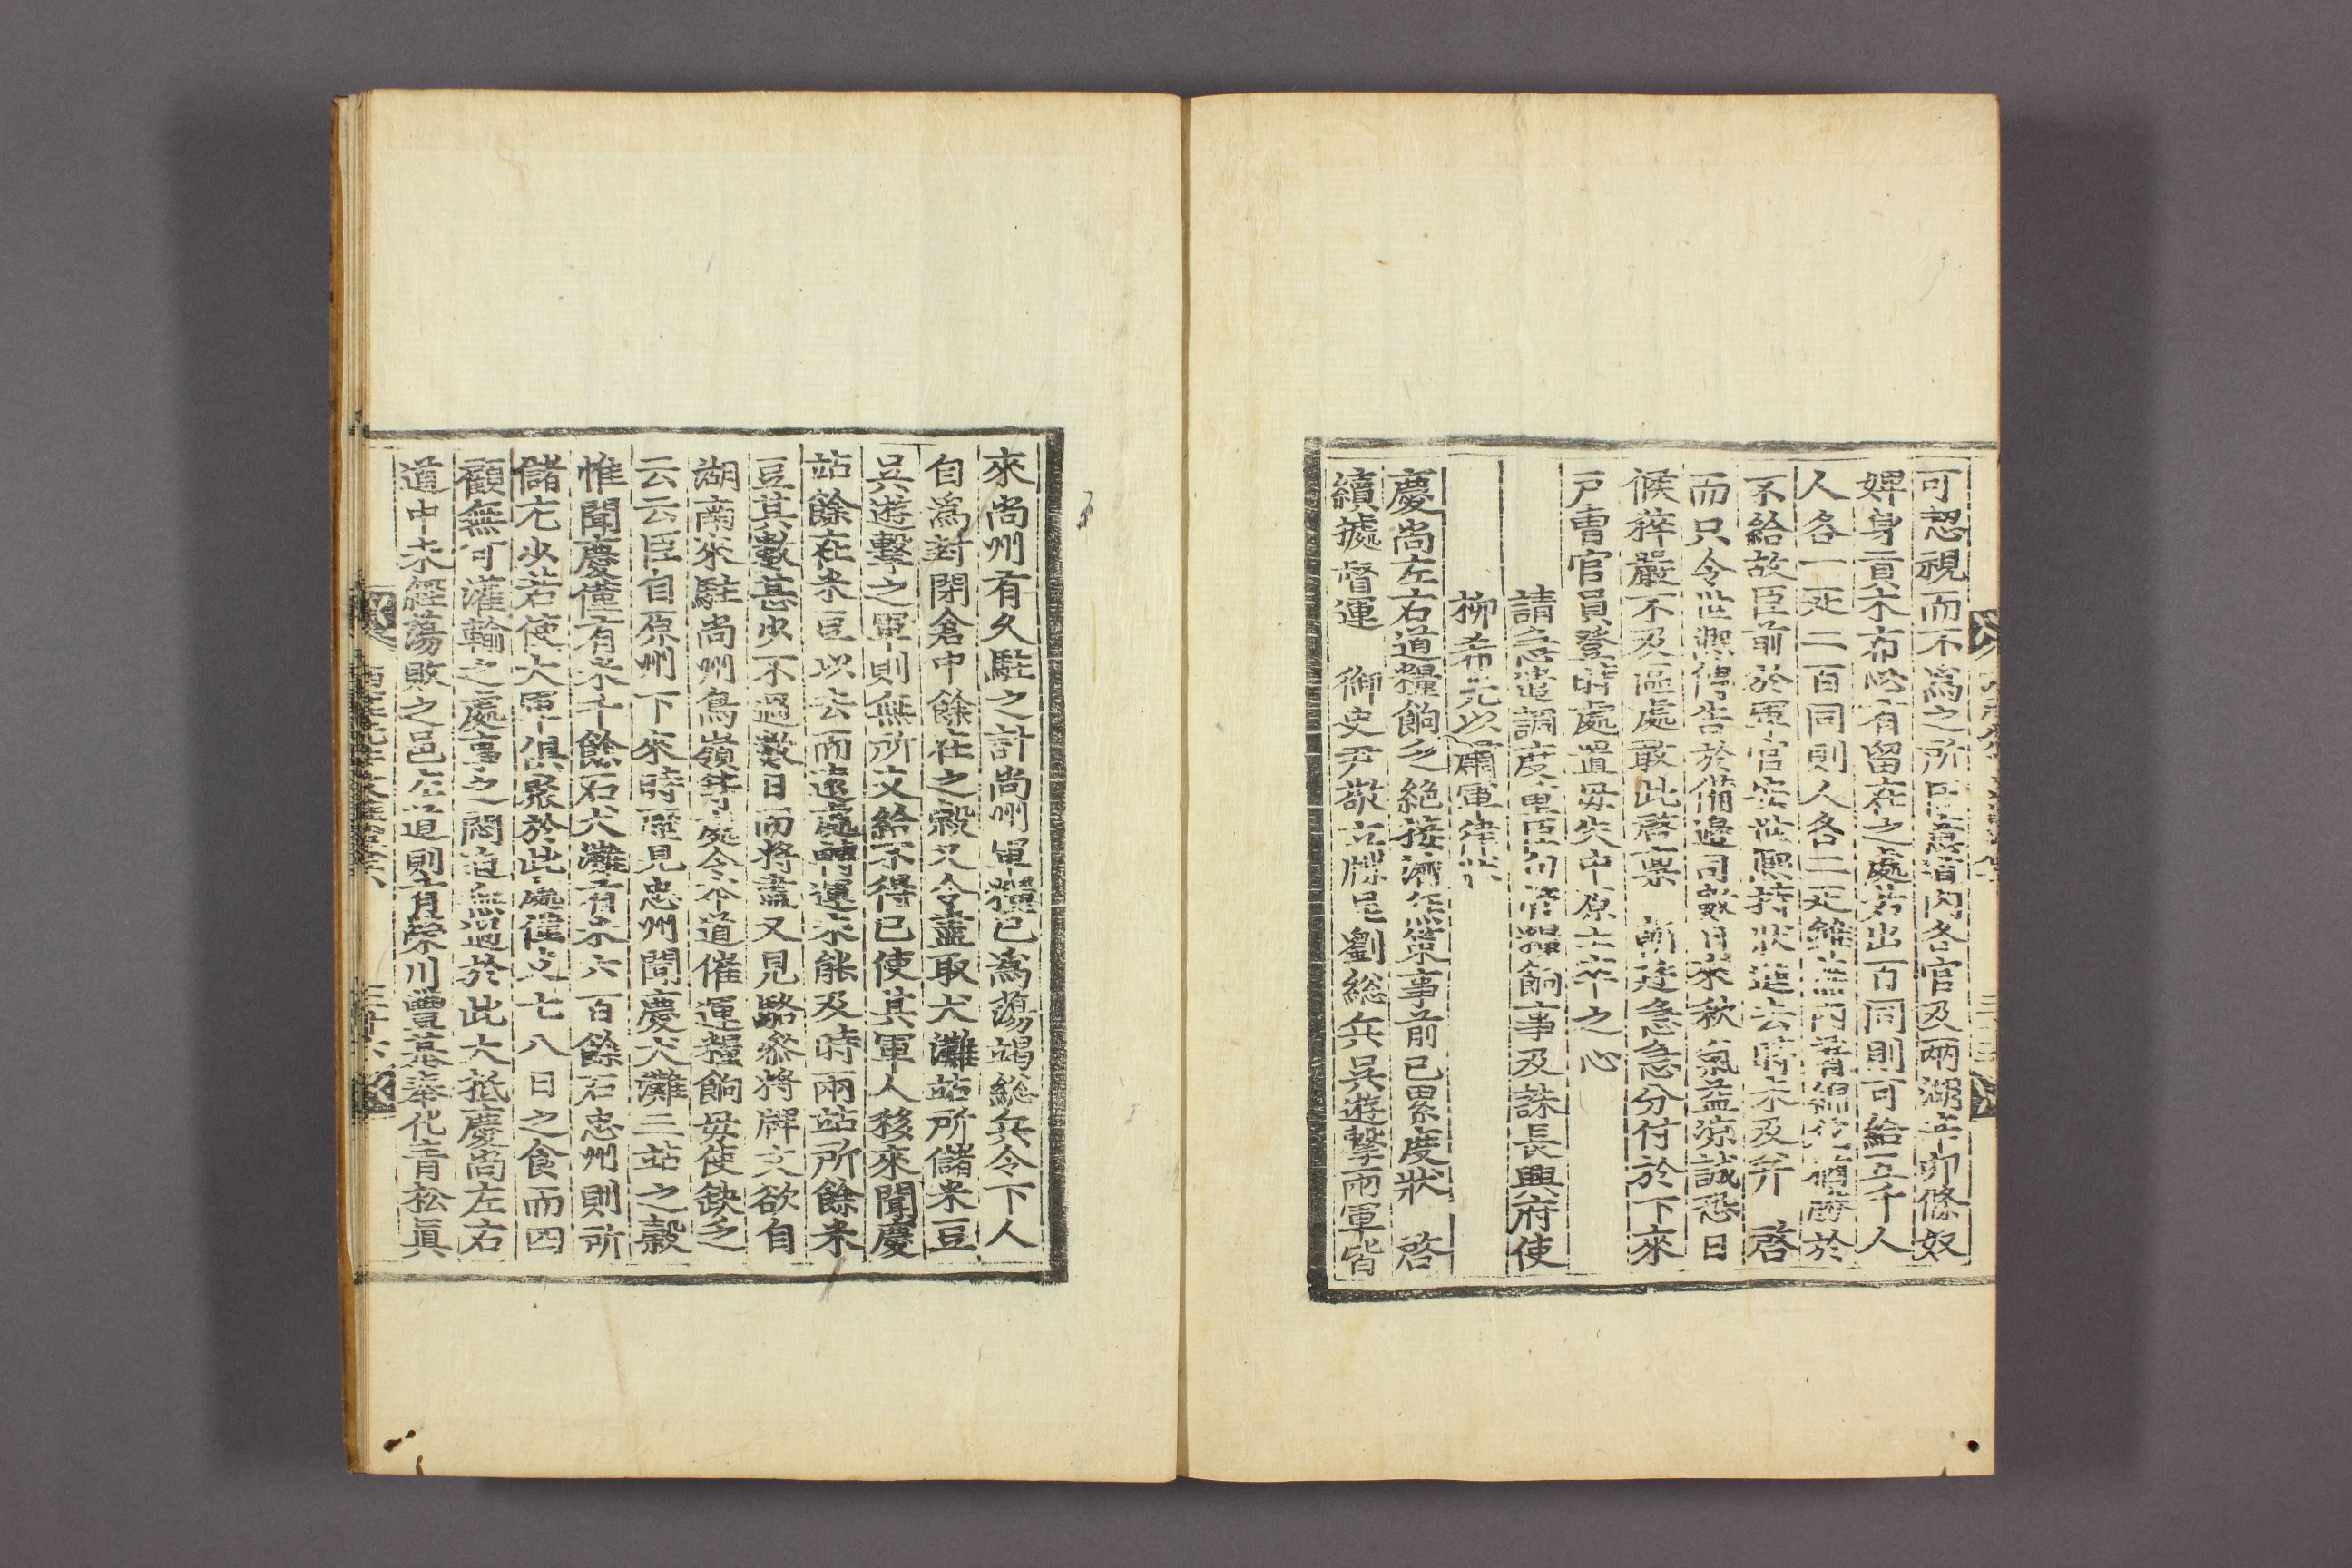 可恝視而不爲之所臣意道内各官及兩湖辛卯條奴
婢身貢木布必有留在之處若出百同則可給五千人
人各一疋二百同則人各二疋雖無內着綿衣猶勝於
不給故臣前於軍官安世熙持狀進去時未及并 啓
而只令世熙傳告於備邊司數日來秋氣益凉誠恐日
候猝嚴不及區處敢此啓禀 斯速急急分付於下來
戶曹官員登時處置毋失中原士卒之心
請急遣調度使臣句管糧餉事及誅長興府使
柳希先以肅軍律狀
慶尚左右道糧餉乏絶接濟無策事前已累度狀 啓
續據督運 御史尹敬立牒呈劉総兵吳遊擊兩軍皆
來尚州有久駐之計尚州軍糧已爲蕩竭総兵令下人
自爲封閉倉中餘在之穀又令盡取犬灘站所儲米豆
吳遊擊之軍則無所支給不得已使其軍人移來聞慶
站餘在米豆以去而遠處轉運未能及時兩站所餘米
豆其數甚少不過數日而將盡又見駱參將牌文欲自
湖南來駐尚州鳥嶺等處令本道催運糧餉毋使缺乏
云云臣自原州下來時歷見忠州聞慶犬灘三站之穀
惟聞慶僅有米千餘石犬灘有米六百餘石忠州則所
儲尤少若使大軍俱聚於此處僅支七八日之食而四
顧無可灌輸之處事之悶迫無過於此大抵慶尚左右
道中未經蕩敗之邑左道則有榮川豊基奉化靑松眞